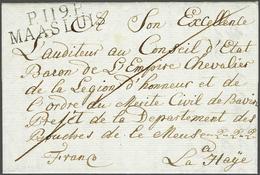 P.119.P.
MAASLUIS
A Son Excellence
L'auditeur au Conseil d'Etat
Baron de L'Empire Chevalier
de la Legion d'honneur et de
L'ordre du Merite Civil de Bavière
Prefet de la Departement des
Bouches de le Meuse
a
Franco La Haÿe